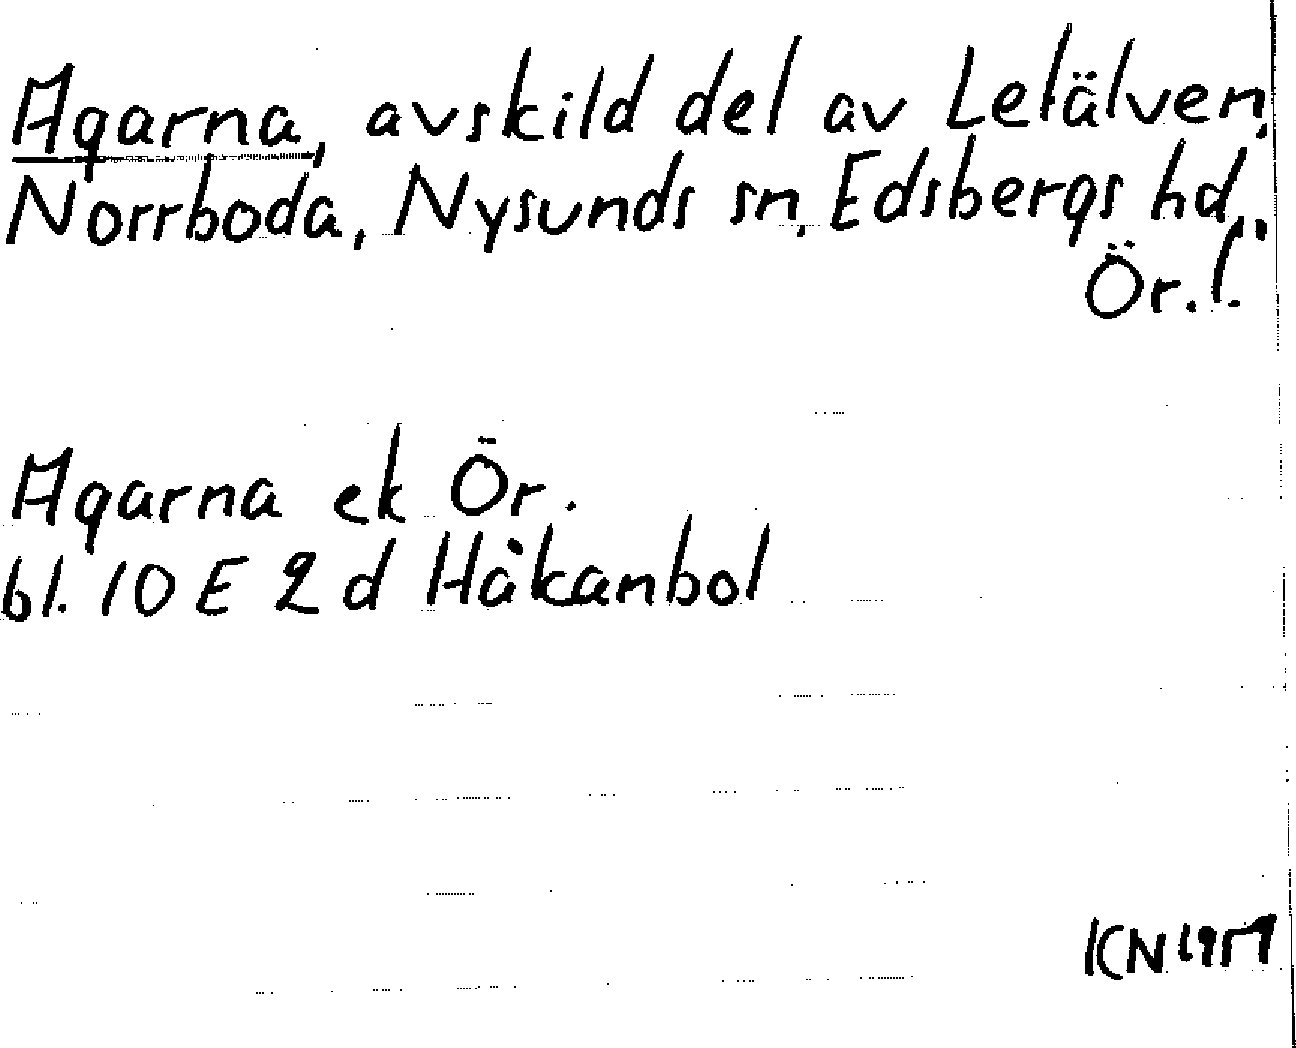 Agarna, avskild del av Letälven,
Norrboda, Nysunds sn, Edsbergs hd,
Ör. l.
Agarna ek Ör.
bl. 10 E 2 d Håkanbol
KN